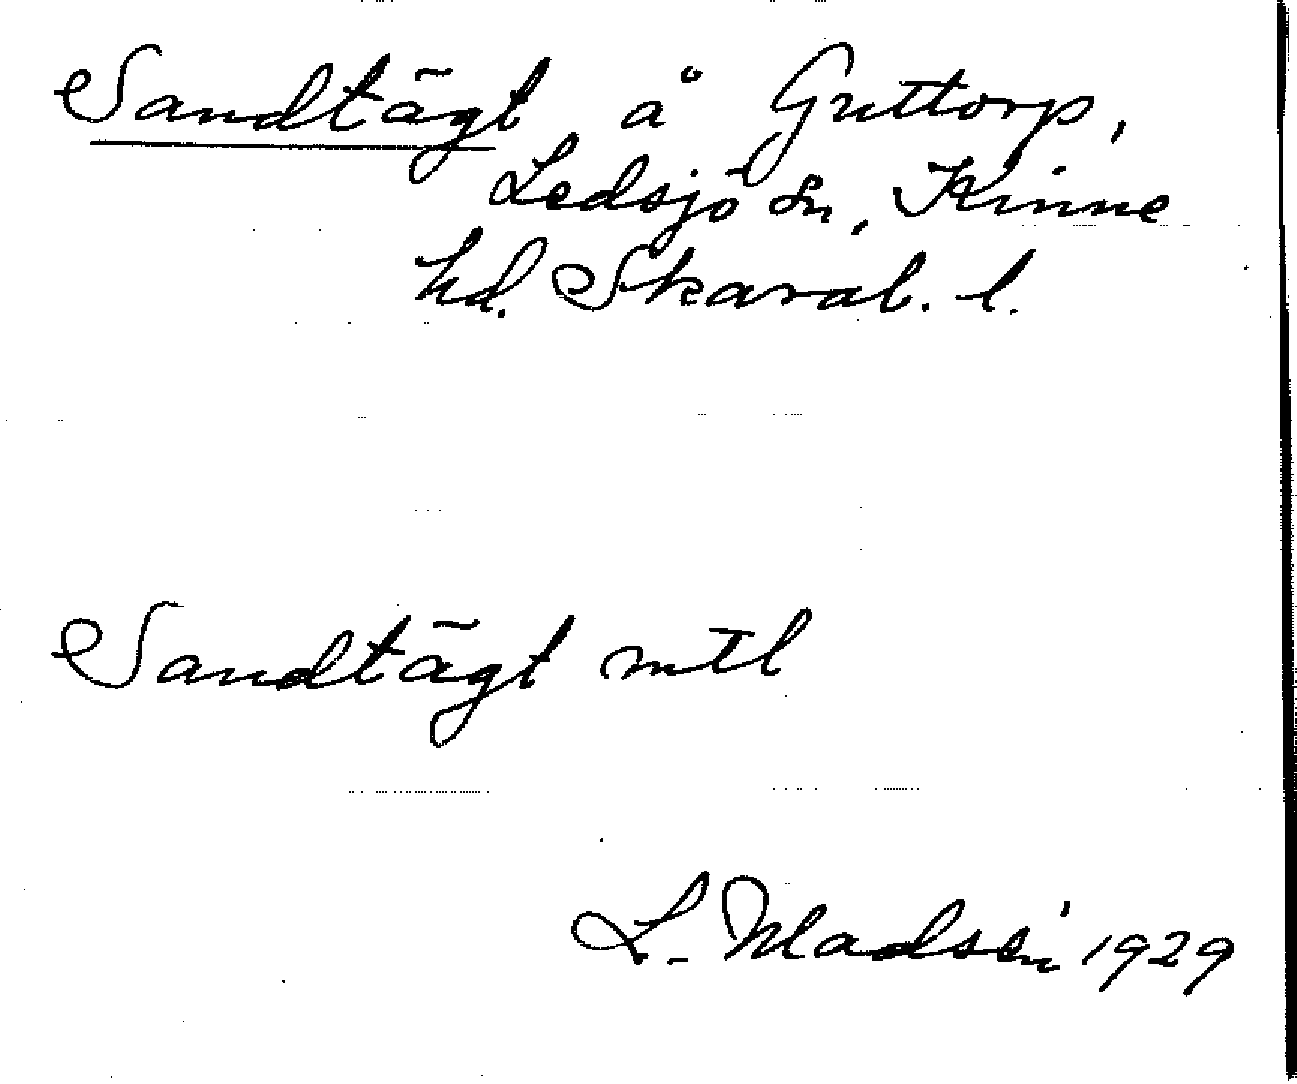 Sandtägt å Guttorp,
Ledsjö sn, Kinne
hd. Skarab. l.
Sandtägt mtl
L. Madsén 1929